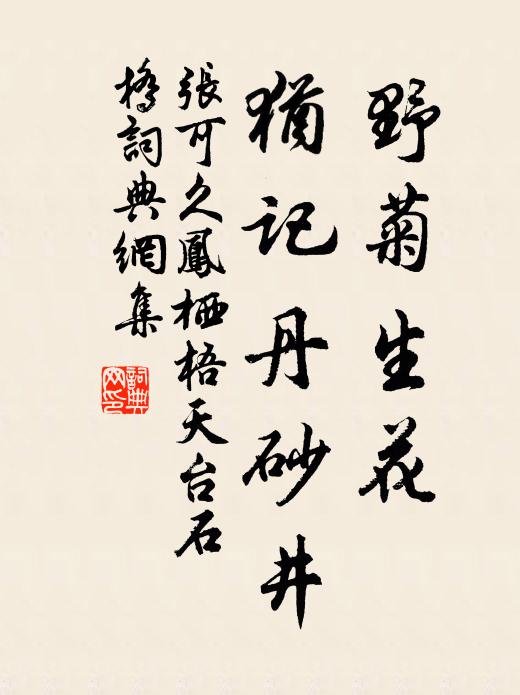 野菊生花
猶記丹砂井
張可久鳳栖梧天台石
橋詞典網集
詞典
网印